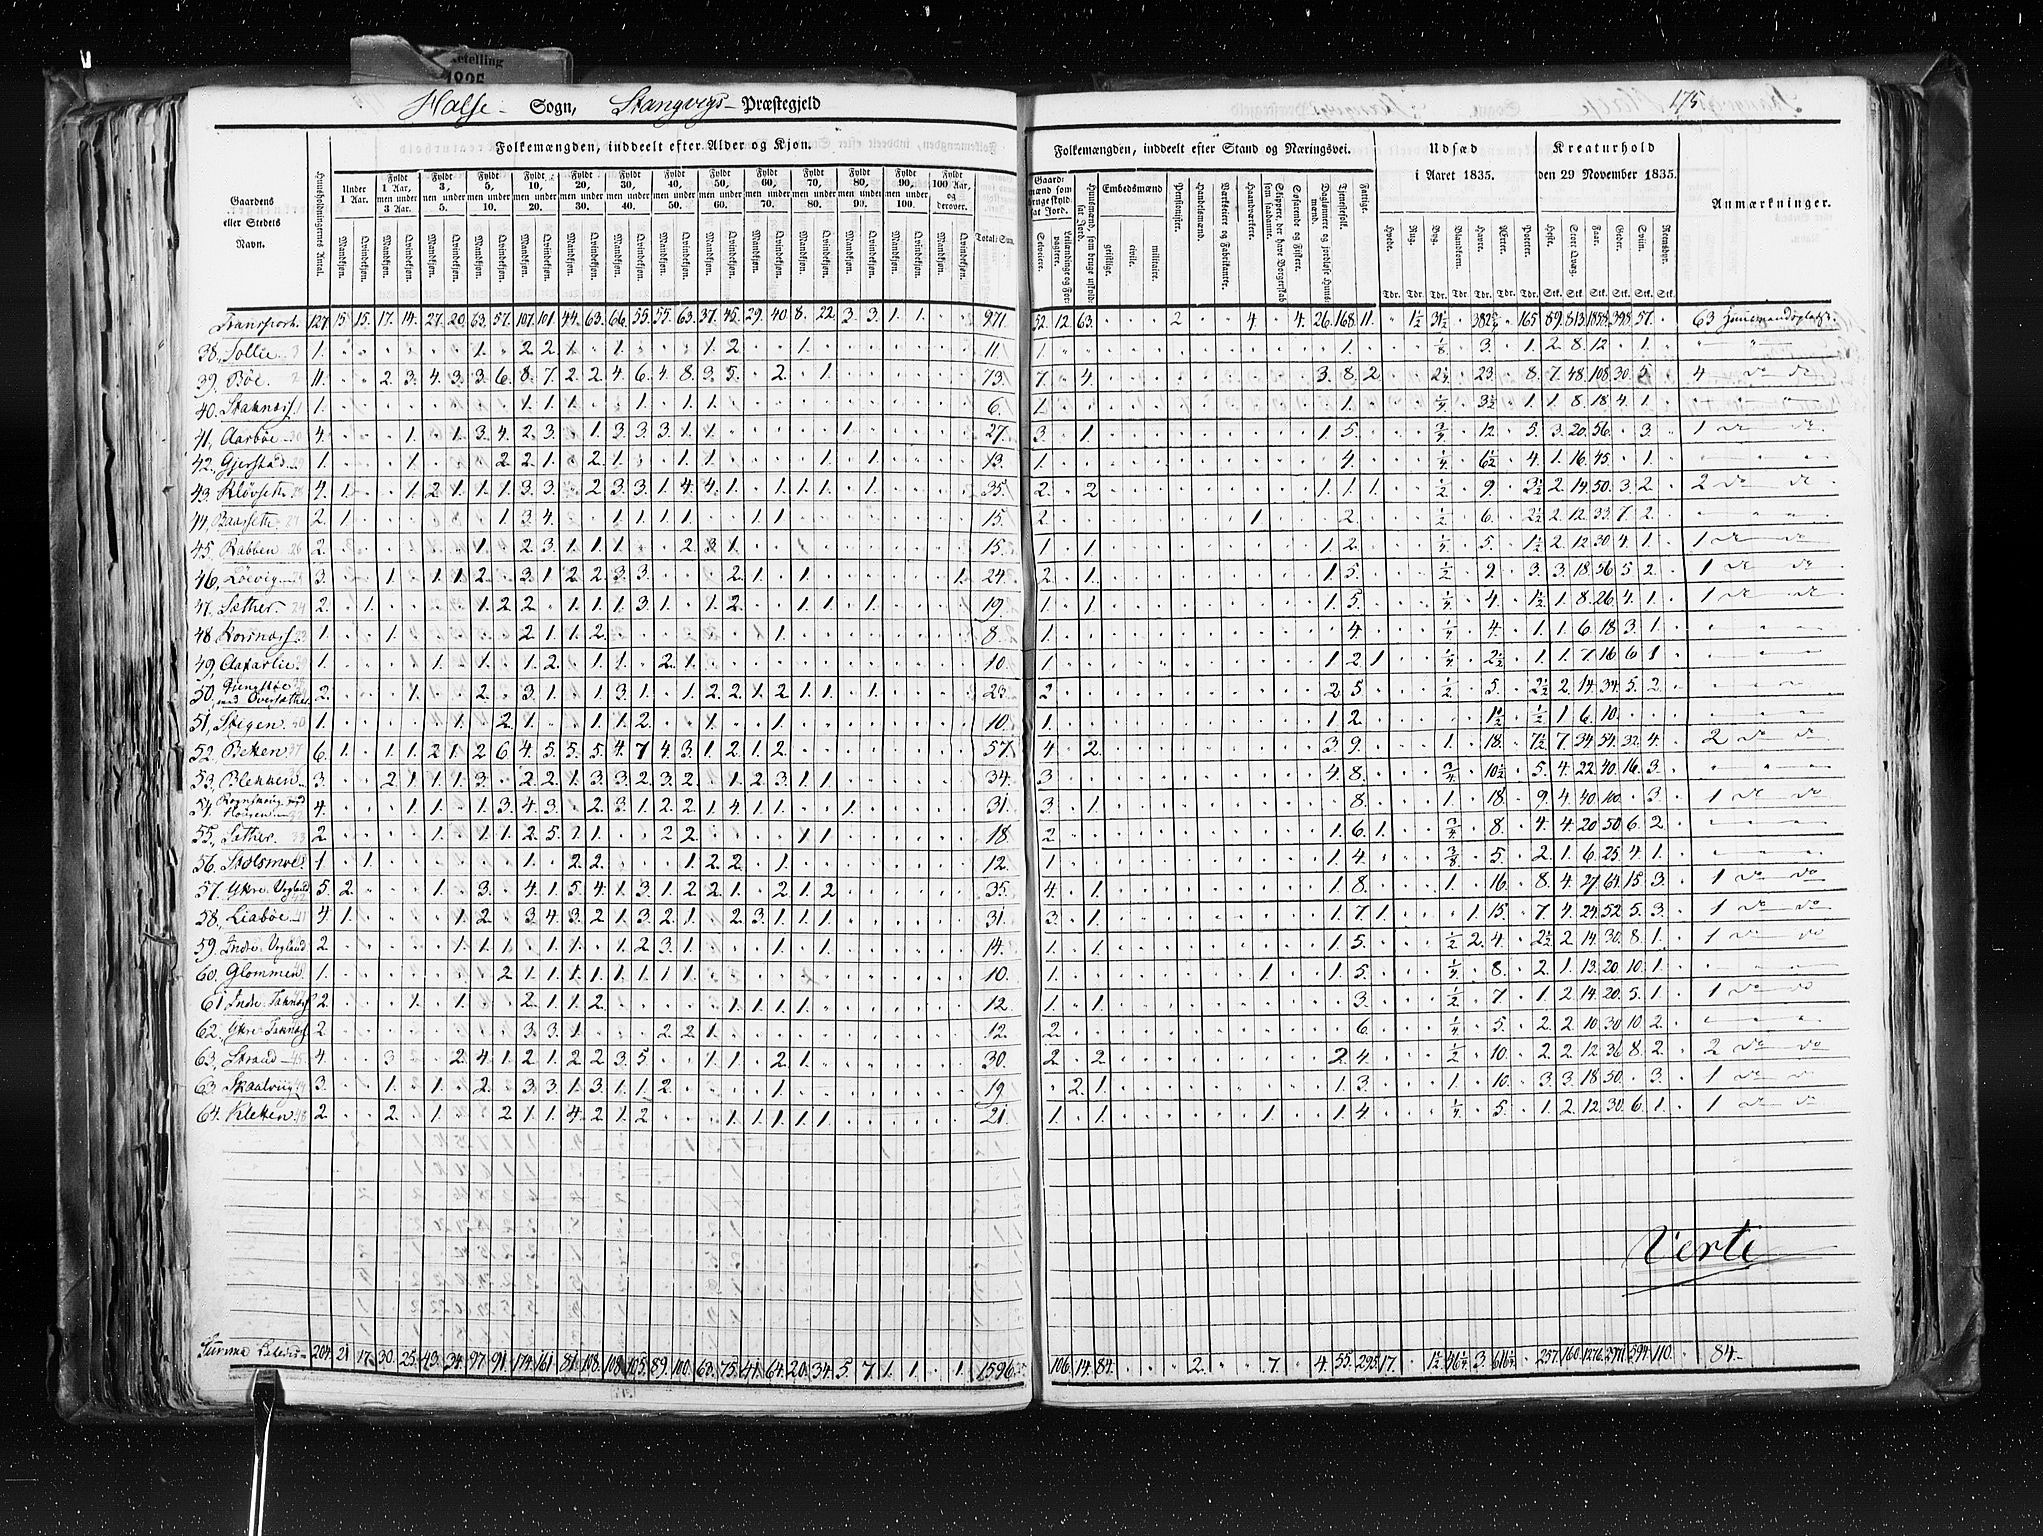 telling
1825
Halse Sogn, Stangvigs Præstegjeld
175
Folkemængden, inddeelt efter Alder og Kjøn.
Folkemængden, inddeelt efter Stand og Næringsvei.
Udsæd
i Aaret 1835.
Kreaturhold
den 29 November 1835.
Anmærkninger.
Gaardens eller Stedets Navn.
Huusholdningernes Antal.
Under 1 Aar.
Fyldt 1 Aar, men under 3 Aar.
Fyldt 3, men under 5.
Fyldt 5, men under 10.
Fyldt 10, men under 20.
Fyldt 20, men under 30.
Fyldt 30, men under 40.
Fyldt 40, men under 50.
Fyldt 50, men under 60.
Fyldt 60, men under 70.
Fyldt 70, men under 80.
Fyldt 80, men under 90.
Fyldt 90, men under 100.
Fyldt 100 Aar, og derover.
Mandkjøn. Qvindekjøn.
Total-Sum.
Embedsmænd
geistlige. civile. militaire.
Pensionister.
Handelsmænd.
Værkseiere og Fabrikanter.
Haandværkere.
Skippere, der have Borgerskab som saadanne.
Søfarende og Fiskere.
Tjenestefolk.
Fattige.
Hvede. Rug. Byg. Blandkorn. Havre. Ærter. Poteter.
Heste. Stort Qvæg. Faar. Geder. Sviin. Rensdyr.
Tdr. Tdr. Tdr. Tdr. Tdr. Tdr. Tdr. Stk. Stk. Stk. Stk. Stk. Stk.
Transport 127 15. 15. 17. 14. 27. 20. 63. 57. 107. 101. 44. 63. 66. 55. 55. 63. 37. 45. 29. 40. 8. 22. 3. 3. 1. 1. 971. 52. 12. 63. 2 4. 4. 26. 168. 11. 165 89. 813. 57. 63 Huusmandspladse
38. Sollie 1. 1. 2 2 1. 1. 1. 2. 1. 11. 1. 1. 1/8 3. 1. 2. 8. 12 1.
39. Bøe. 11. 2. 3. 4. 3. 3. 6. 8. 7. 2. 2. 4. 6. 4. 8. 3. 5. 2. 1. 73. 7. 4. 3. 8. 2 23. 8. 7. 48. 108. 30. 5. 4 do do
40. 1. 1. 1. 1. 1. 1. 1. 6. 1. 1. 1/4 3½ 1. 1. 8. 18. 4. 1.
41. Aarbøe 4. 1. 1. 3. 4. 2. 3. 1. 3. 3. 3. 1. 1. 1. 27. 3. 1. 1. 5. 3/4 12. 5. 3. 20. 56. 3. 1 do do
42. Gjerstad 1. 1. 2 2 1. 2. 1. 1. 1. 1. 1. 13. 1. 4. 1/4 6½ 4. 1. 16. 45. 1.
43. Kløvseth 4. 1. 1. 2. 1. 1. 1. 3. 3. 2. 3. 3. 1. 4. 4. 1. 1. 1. 1. 1. 35. 2. 2 1. 1. 1. 1/2 9. 3½ 2. 14. 50. 3. 2. 2 do do
44. 2. 1. 1. 3. 4. 1. 1. 1. 1. 1. 1. 15. 2. 1. 2. 1/2 6. 2½ 2. 12. 33. 7. 2.
45. Rabben 2. 1. 2. 3. 1. 1. 1. 2. 3. 1. 15. 1. 1. 1. 2. 1/4 5. 1½ 2. 12 30 4. 1. 1 do do
46. 3. 1. 1. 1. 2. 3. 1. 2. 2. 3. 3. 2. 1. 1. 1. 24. 2. 1. 1. 5. 1/2 9. 3. 3. 18. 56 5. 2. 1 do do
47. Sæther 2. 1. 1. 2. 2. 1. 1. 1. 3. 1. 1. 2. 1. 1. 1. 19. 1. 1. 1. 5. 1/4 4. 1½ 1. 8. 26. 4. 1. 1 do do
48. Korsnæs 1. 1. 2. 1. 1. 2. 1. 8. 1. 4. 1/4 4. 1. 1. 6. 18. 3. 1.
49. 1. 1. 1. 1. 2. 1. 1. 2. 1. 10. 1. 1 2 1 1/4 2½ 1. 1. 7. 16 6 1
50. 2. 1. 2. 3. 1. 1. 3. 1. 1. 2. 2. 1. 2. 1. 1. 1. 23. 2. 2 5. 1/2 5. 2½ 2. 14. 34. 5. 2.
51. Stigen 1. 1. 2 1. 1. 1. 2. 1. 1. 10. 1. 1 2. ½ 1. 6. 10.
52. Bekken 6. 1. 1. 1. 2. 1. 2 6. 4. 5. 5. 5. 4. 7 4. 3. 1. 2. 1. 2. 57. 4. 2. 3. 9. 1. 18. 7½ 7. 34. 54. 32. 4. 2 do do
53. Blekken 3. 2 1. 1. 1. 3. 2. 2. 1. 3. 3. 2. 3. 2. 1. 2. 3. 1. 1. 34. 3 4. 8. 3/4 10½ 5. 4. 22. 40. 16. 3.
54. 4. 1. 1. 1. 3. 4. 3. 2. 3. 1. 2. 2. 1. 4. 1. 1. 1. 31. 3. 1. 8. 1. 18. 9. 4. 40. 100. 3. 1 do do
55. Sæther 2. 1. 1. 1. 2. 5. 2 2. 1. 1. 18. 2. 1. 6. 1. 3/4 8. 4. 4. 20. 50. 6. 2.
56. 1. 1. 1. 2. 2. 1. 2. 2. 1. 12. 1. 1. 4. 3/8 5. 2. 1. 6. 25. 4. 1.
57. Ytre Vogland 5. 2. 1. 3. 4. 1. 5. 4. 1. 3. 1. 2. 2. 1. 2. 1. 2 35. 4. 1. 1. 8. 1. 16. 8. 4. 27 64. 15. 3. 1 do do
58. Liabøe 4. 1. 1. 2. 3. 4. 3. 2. 1. 3. 2. 1. 2. 3. 1. 1. 1. 31. 3. 1. 1. 7. 1 1. 15. 7. 4. 24. 52 5. 3. 1 do do
59. Indre Vogland 2. 1. 1. 1. 1. 1. 1. 2. 3. 1. 1. 1. 14. 1. 1. 1. 5. 1/2 2. 4. 2½ 2 14. 30. 8. 1. 1 do do
60. Glommen 1. 2 1. 1. 1. 1. 1. 1. 1. 1. 10. 1. 1 1. 5. 1/4 8. 2. 1. 13. 20. 10. 1.
61 2. 1. 1. 2. 1. 1. 2. 1. 1. 1. 1. 12. 1. 1. 3. 1/2 7 1. 2 14. 20. 5. 1 1 do do
62. 2. 3. 3. 1. 2. 2 1. 12 2. 6. 1/4 5. 2. 2 10. 30 10. 2.
63. Strand 4. 3 2. 4. 1. 2. 1. 2. 2. 3. 5. 1. 1. 2. 1. 30. 2. 2. 2. 4. 1/2 10. 2. 2. 12. 36 8. 2. 2 do do
63 3. 1. 1. 2. 3. 3. 1. 3. 1. 1. 2. 1. 19 2. 1. 1. 3. 1. 10. 3. 3. 18. 50. 3. 1 do
64. Kletten 2. 2. 1. 2 1. 1. 4. 2. 1. 2 1. 1. 1. 1. 1. 21. 1. 1. 1. 1. 4. 1/4 5. 1. 2. 12. 30. 6. 1. 1 do do
Verte
Summa 204 21 17. 30. 25. 43. 34. 97. 91. 174. 161. 81. 108. 108. 105. 89. 100. 63. 75. 41. 64. 20. 34. 5. 7. 1. 1. 1. 1596. 106. 14. 84. 2. 7. 4. 55. 295. 17. 1½ 3. 257. 160. 1276. 594. 110. 84.